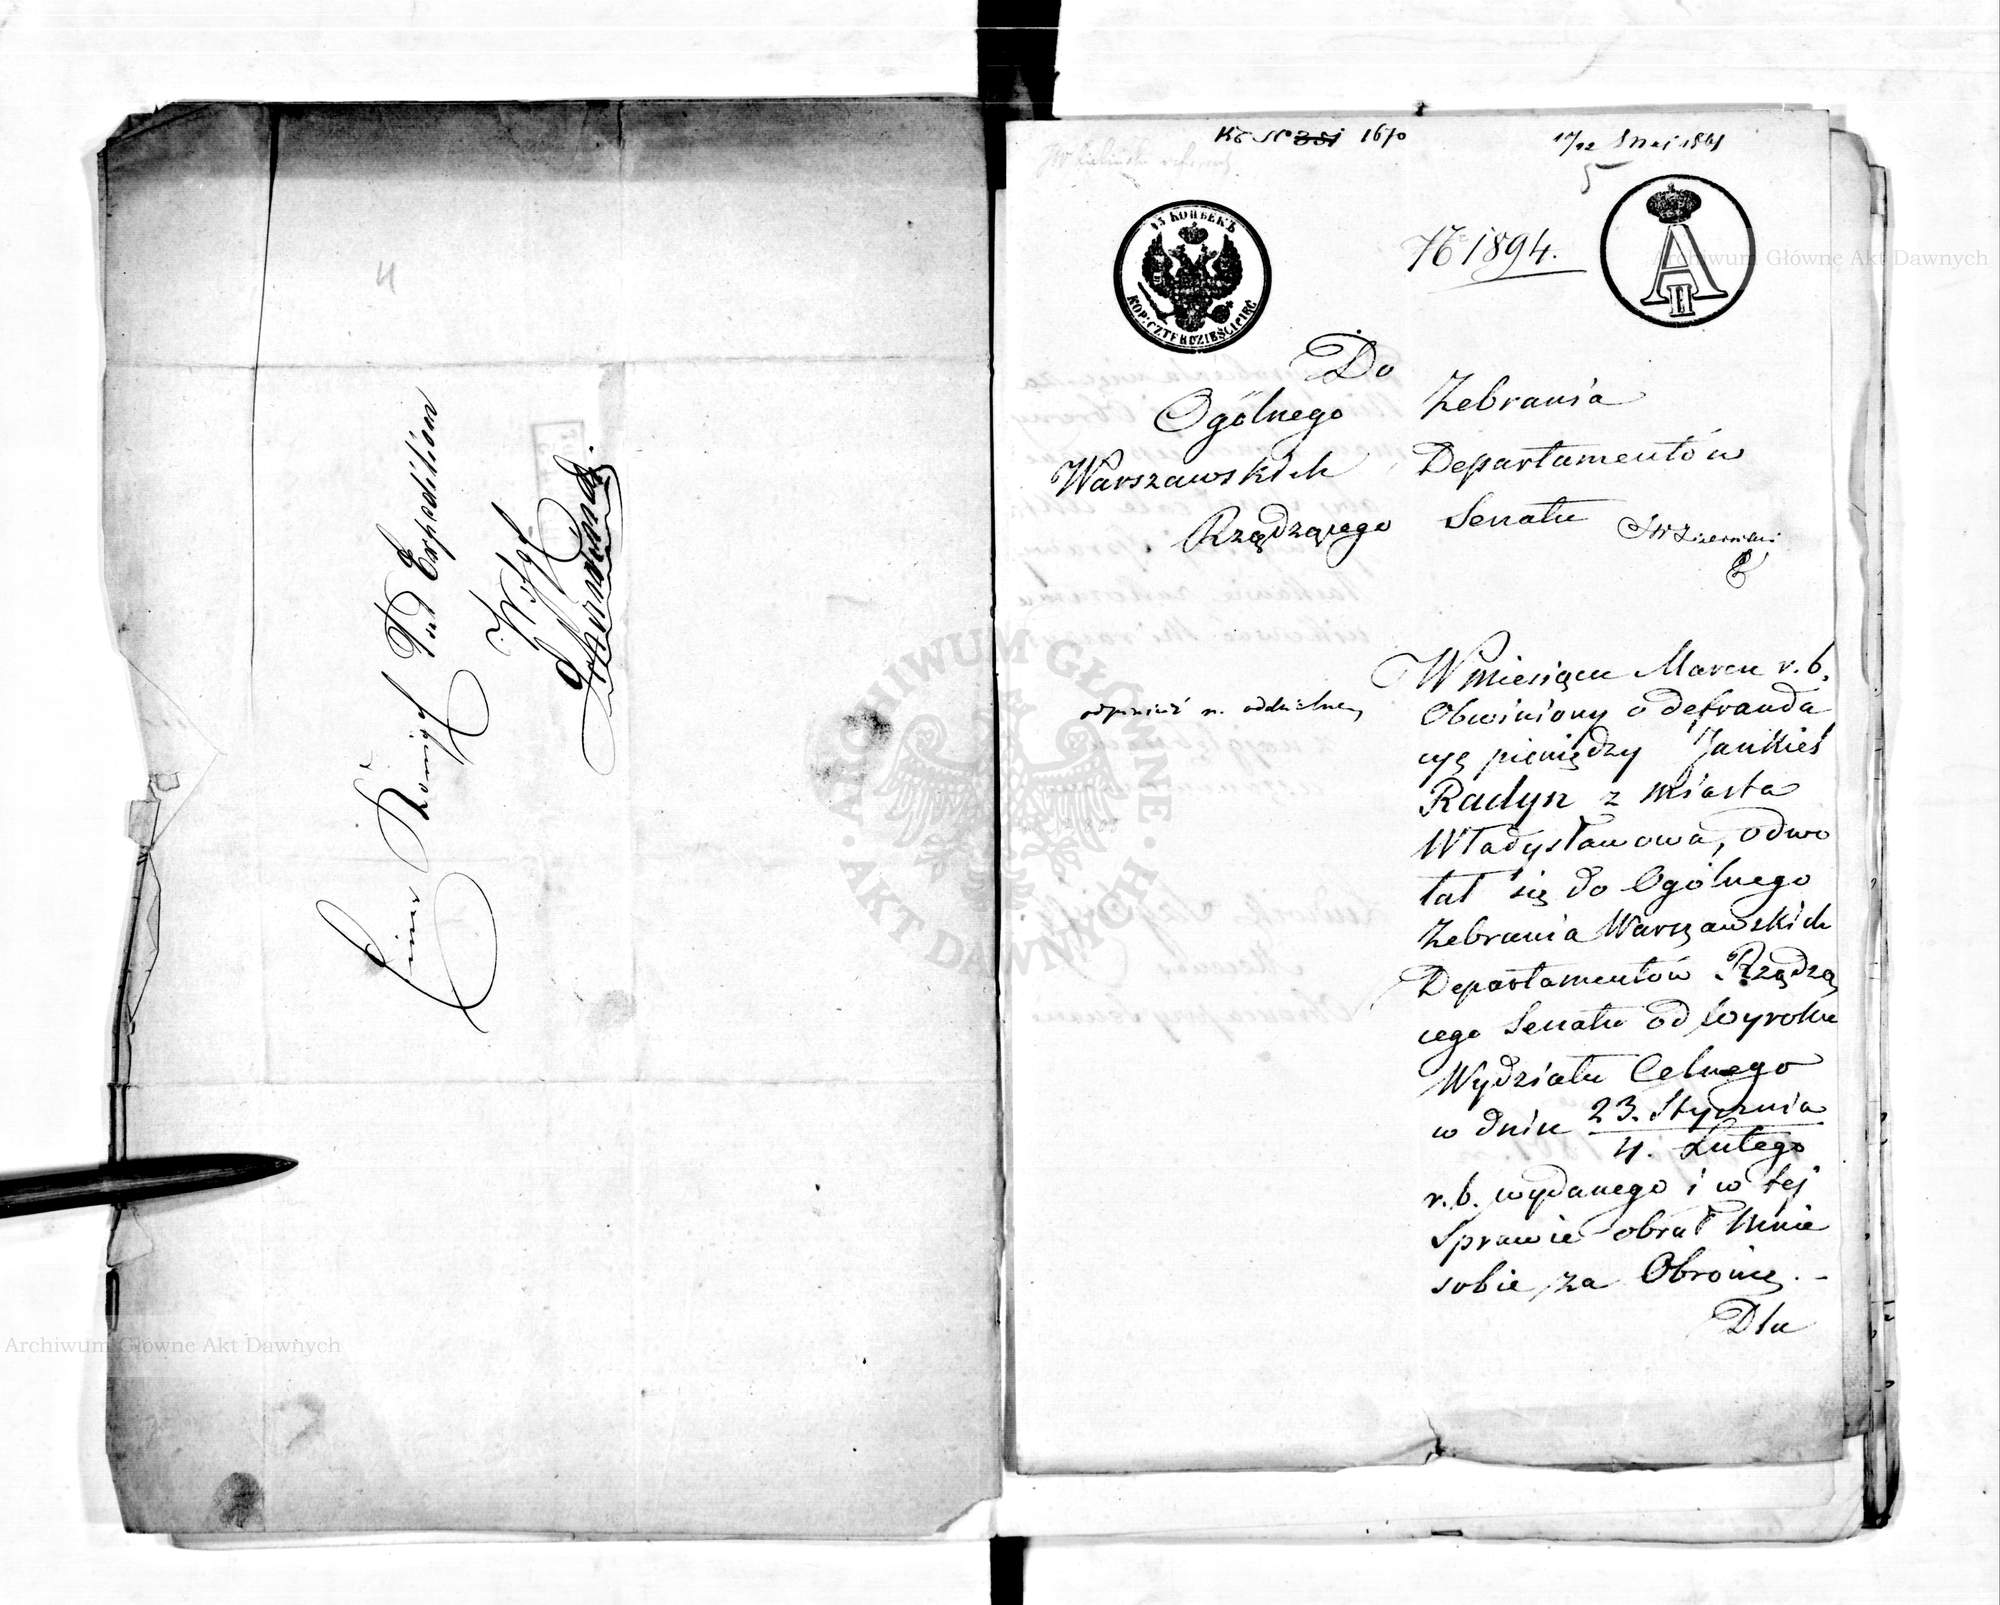 4
Einer
Königl
Post Expedition
Wohl
№ 1670
1861
5
45 КОПѢЕКЪ
KOP: CZTERDZIEŚCI PIĘĆ
№ 1894.
A II
Do
Ogólnego Zebrania
Warszawskich Departamentów
Rządzącego Senatu
W miesiącu Marcu r. b.
Obwiniony o defrauda
cyę pieniędzy Jankiel
Radyn z miasta
Władysławowa, odwo
łał się do Ogólnego
Zebrania Warszawskich
Departamentów Rządzą
cego Senatu od wyroku
Wydziału Celnego
w dniu 23. Stycznia
4. Lutego
r. b. wydanego i w tej
Sprawie obrał Mnie
sobie za Obrońcę. –
Dla
Archiwum Główne Akt Dawnych
Archiwum Główne Akt Dawnych
ARCHIWUM GŁÓWNE
AKT DAWNYCH